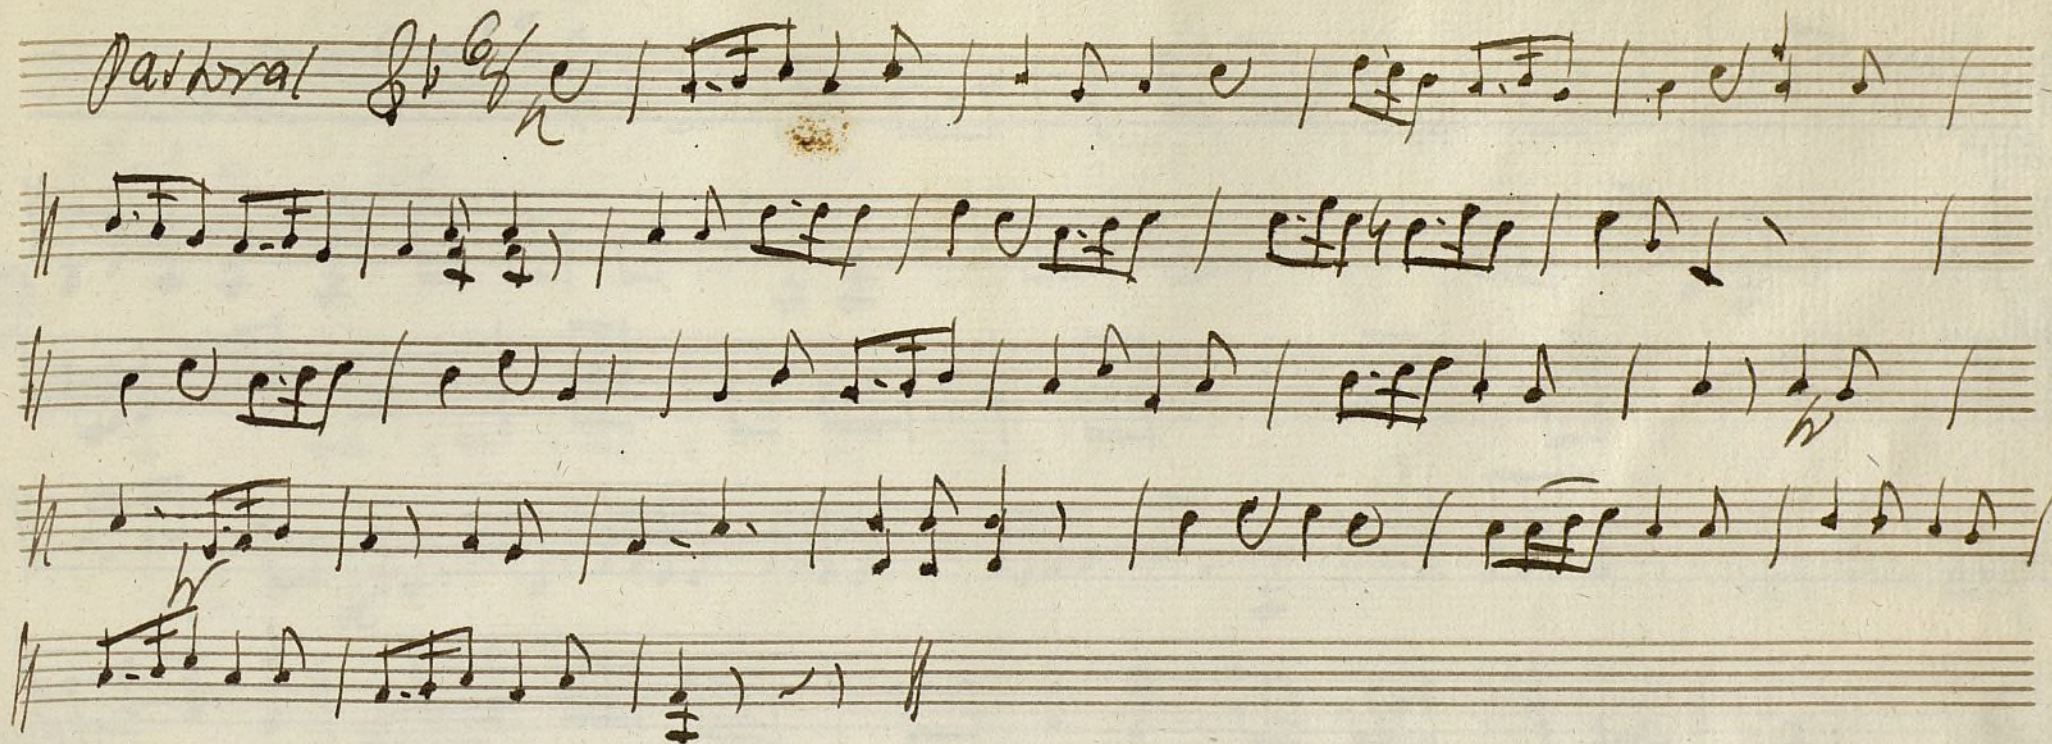 Pastoral 6/8